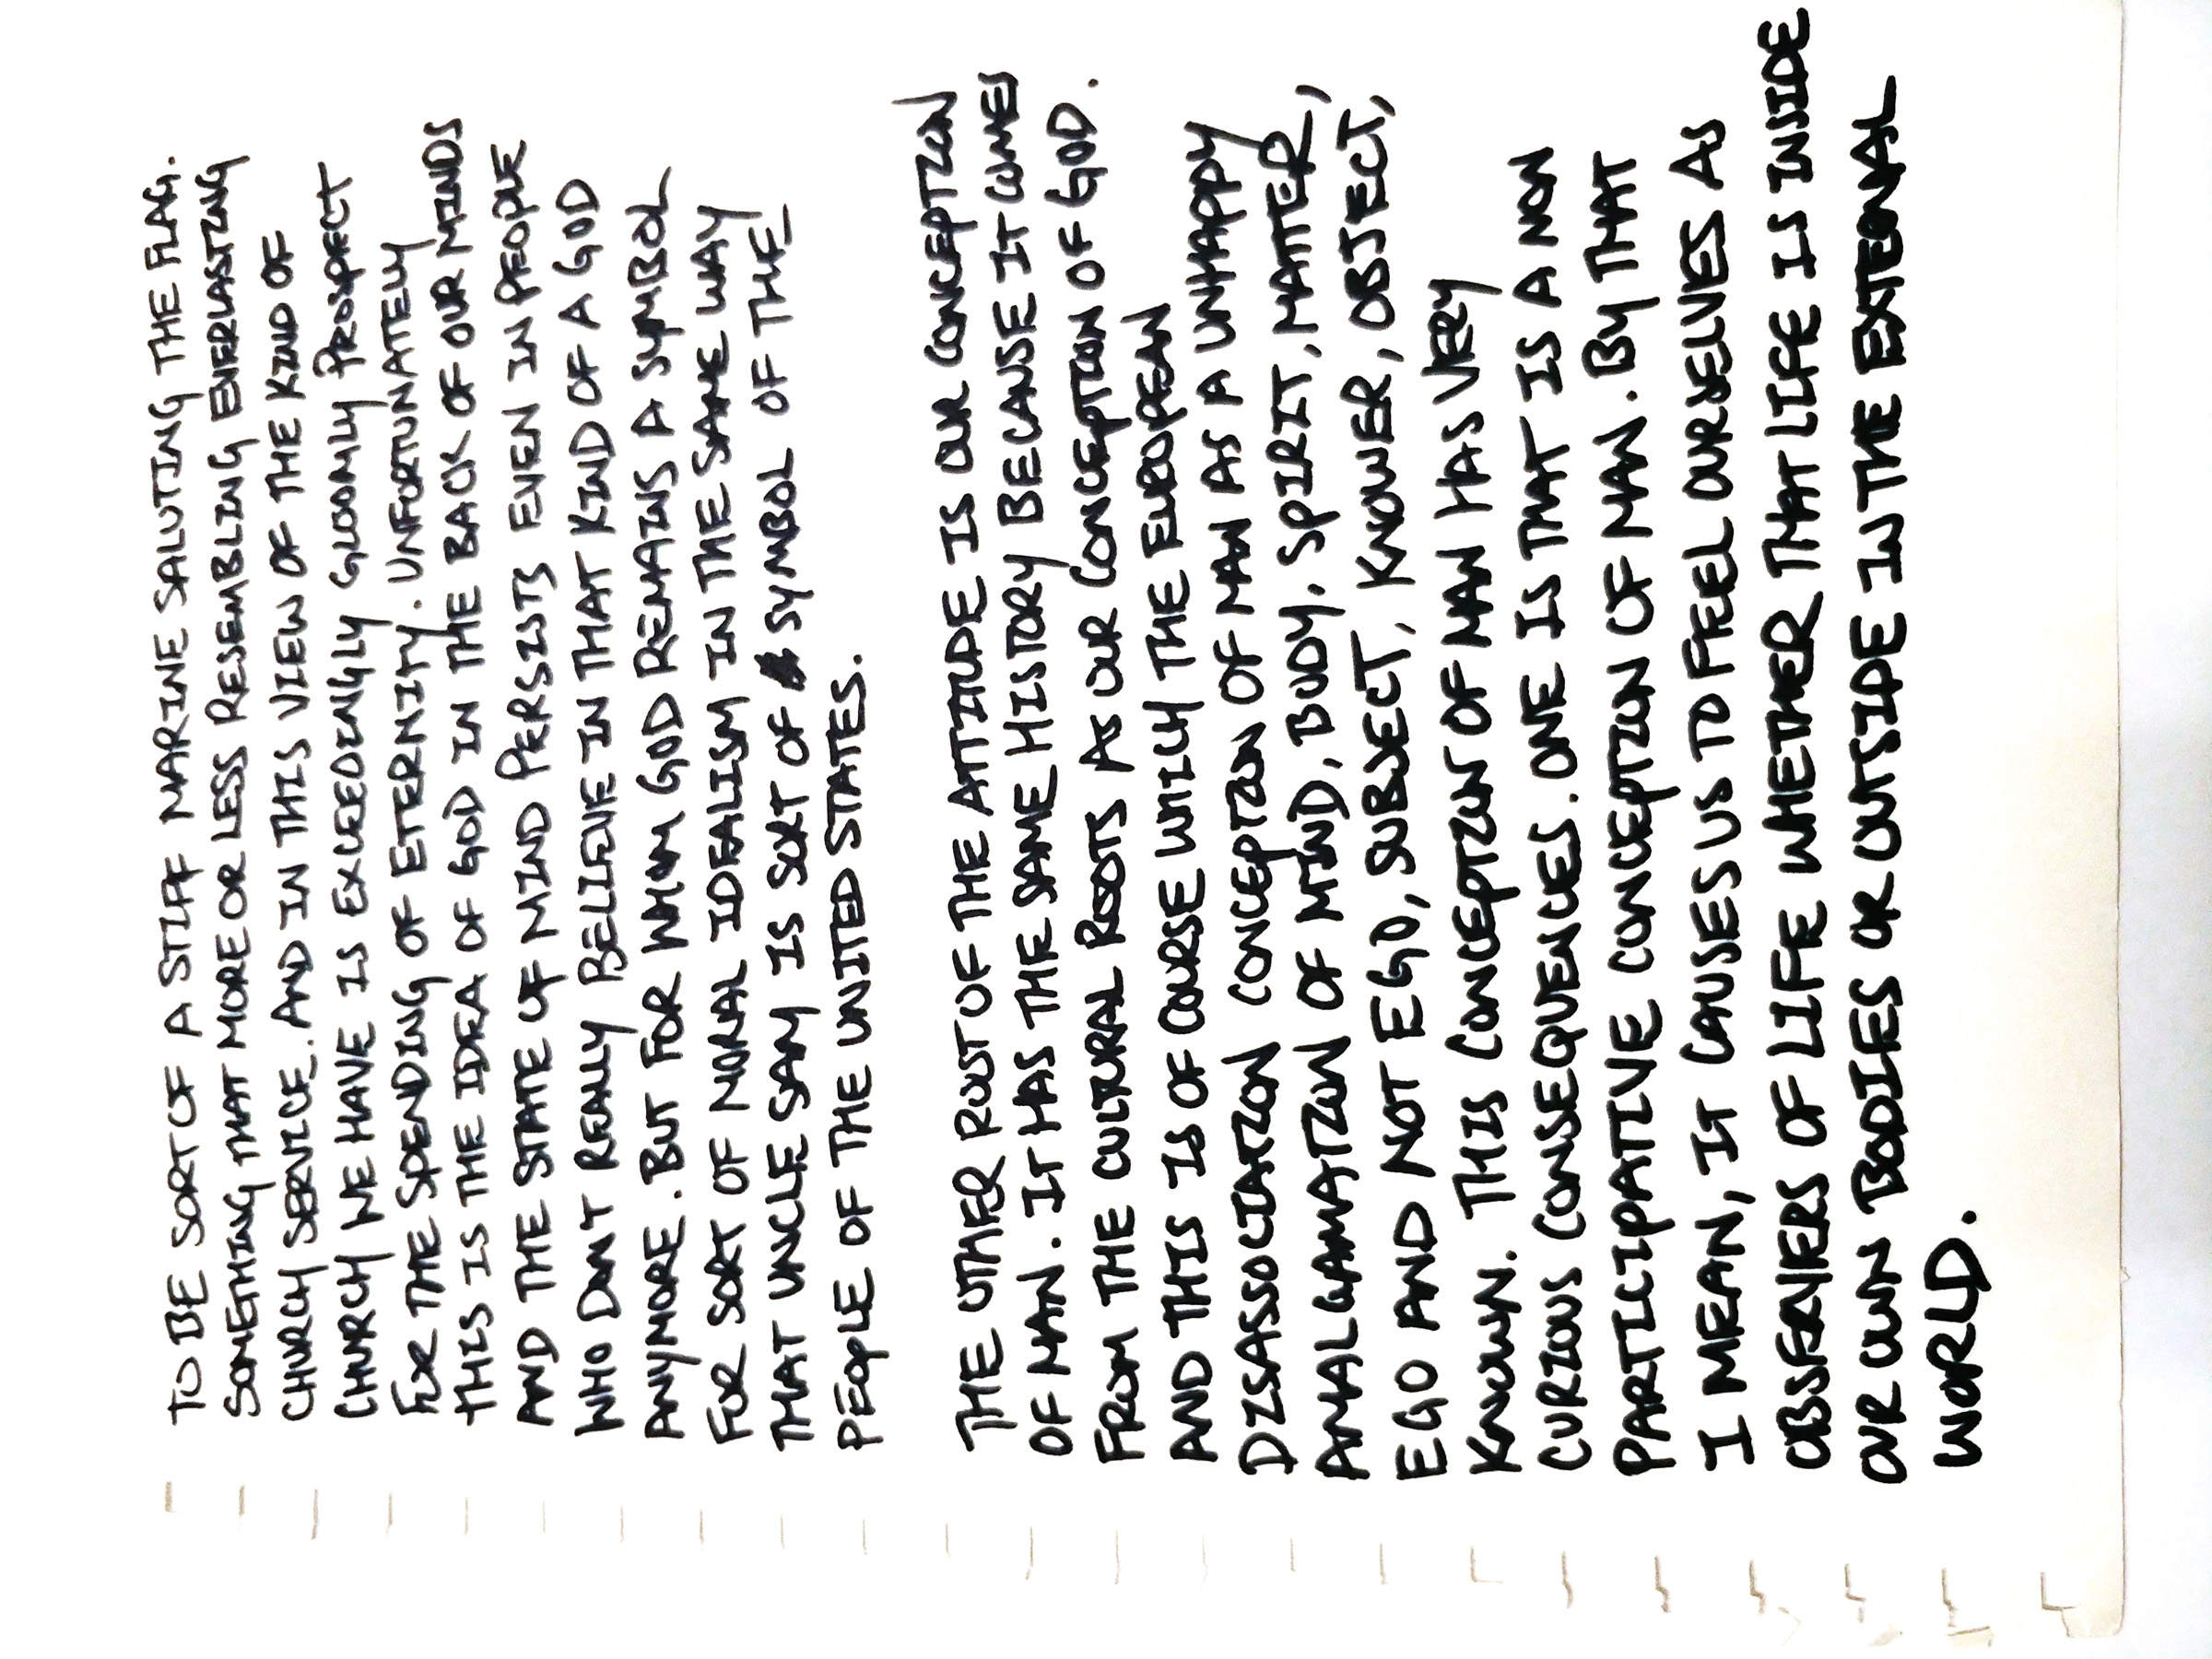 TO BE SORT OF A STIFF MARINE SALUTING THE FLAG.
SOMETHING THAT MORE OR LESS RESEMBLING EVERLASTING
CHURCH SERVICE. AND IN THIS VIEW OF THE KIND OF
CHURCH WE HAVE IS EXCEEDINGLY GLOOMLY PROSPECT
FOR THE SPENDING OF ETERNITY. UNFORTUNATELY
THIS IS THE IDEA OF GOD IN THE BACK OF OUR MINDS
AND THE STATE OF MIND PERSISTS EVEN IN PEOPLE
WHO DON'T REALLY BELIEVE IN THAT KIND OF A GOD
ANYMORE. BUT FOR WHOM GOD REMAINS A SYMBOL
FOR SORT OF MORAL IDEALISM IN THE SAME WAY
THAT UNCLE SAM IS SORT OF SYMBOL OF THE
PEOPLE OF THE UNITED STATES.
THE OTHER ROOT OF THE ATTITUDE IS OUR CONCEPTION
OF MAN. IT HAS THE SAME HISTORY BECAUSE IT COMES
FROM THE CULTURAL ROOTS AS OUR CONCEPTION OF GOD.
AND THIS IS OF COURSE WITCH THE EUROPEAN
DISASSOCIATION CONCEPTION OF MAN AS A UNHAPPY
AMALGAMATION OF MIND, BODY, SPIRIT, MATTER,
EGO AND NOT EGO, SUBJECT, KNOWER, OBJECT,
KNOWN. THIS CONCEPTION OF MAN HAS VERY
CURIOUS CONSEQUENCES. ONE IS THAT IS A NON
PARTICIPATIVE CONCEPTION OF MAN. BY THAT
I MEAN, IT CAUSES US TO FEEL OURSELVES AS
OBSERVERS OF LIFE WHETHER THAT LIFE IS INSIDE
OUR OWN BODIES OR OUTSIDE IN THE EXTERNAL
WORLD.